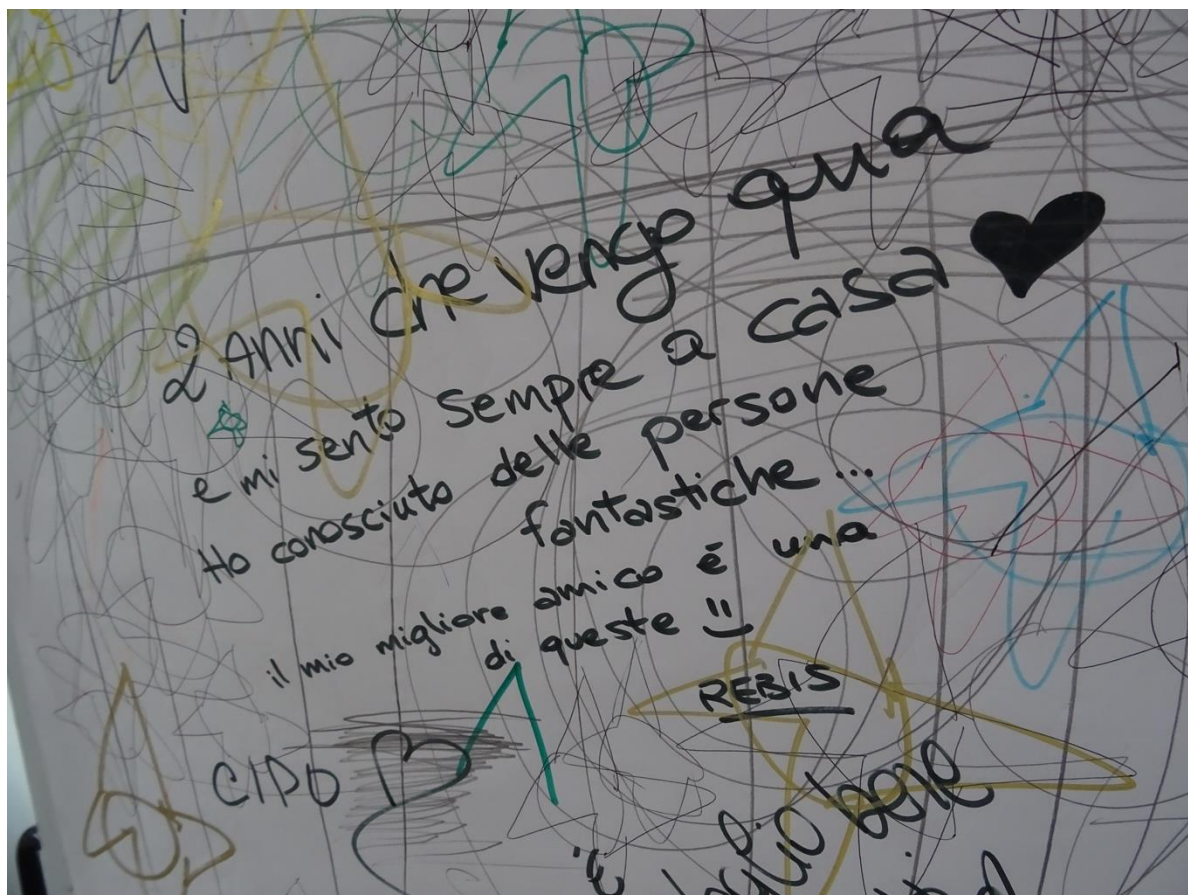 2 Anni che vengo qua
e mi sento sempre a casa ♥
Ho conosciuto delle persone
fantastiche...
il mio migliore amico è una
di queste
REBIS
CIDO
bene